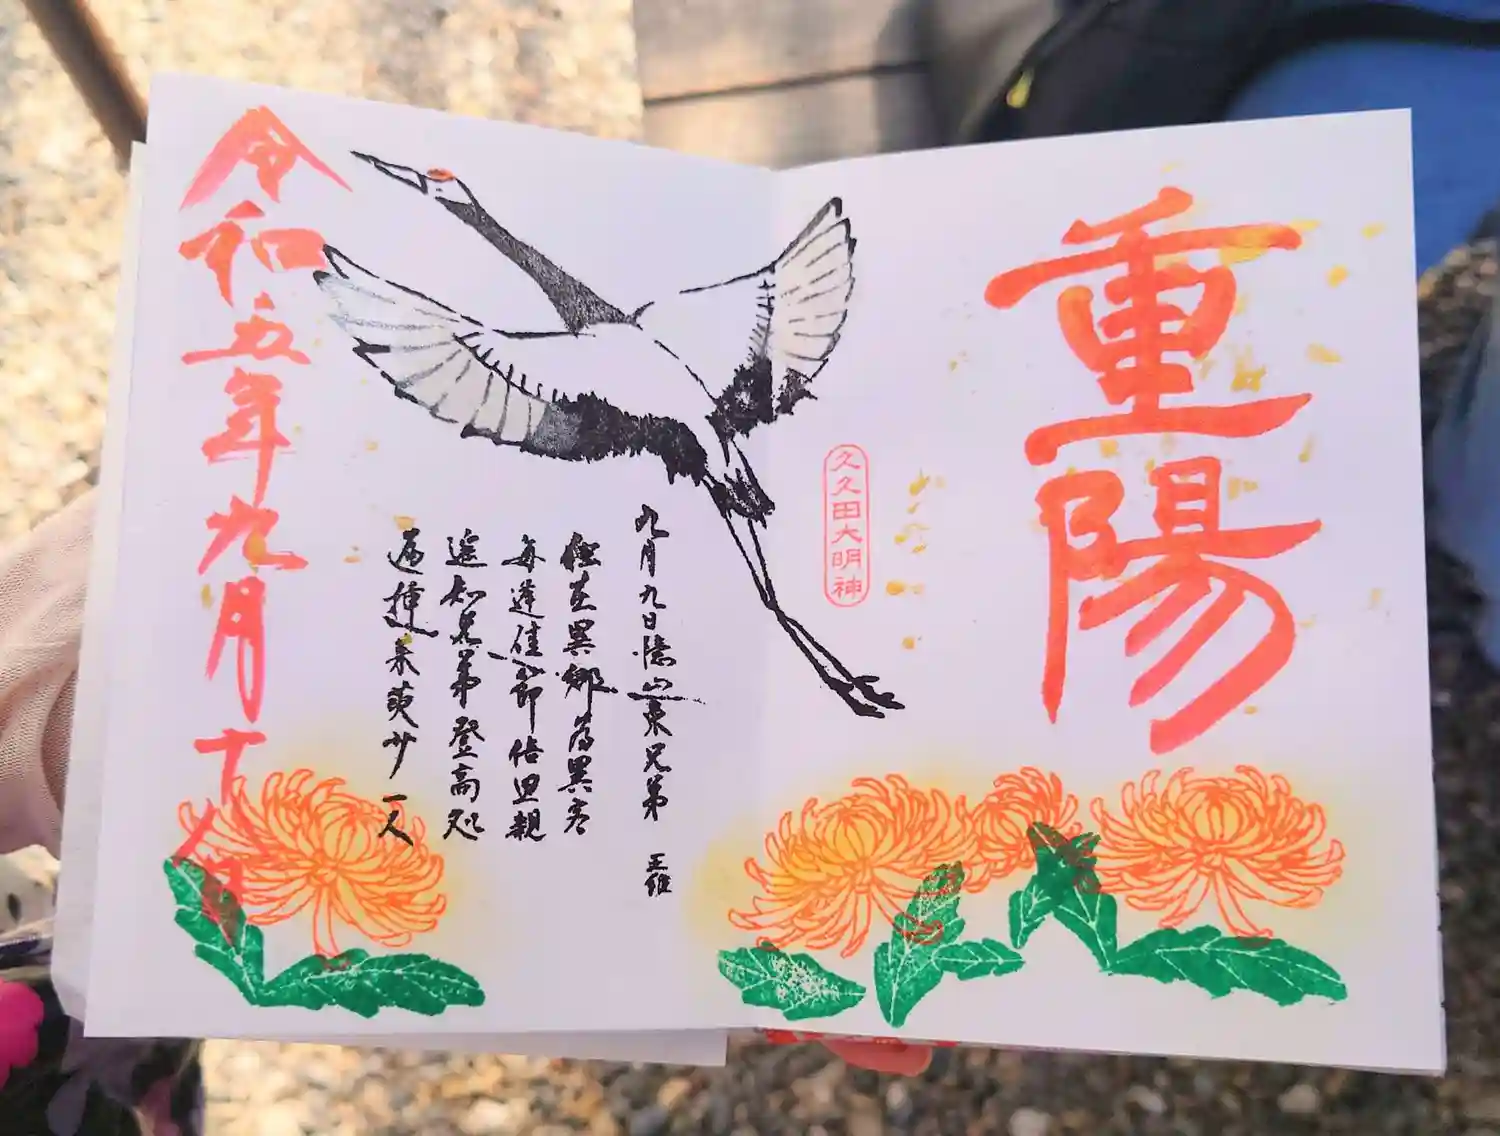 重陽
久久田大明神
九月九日憶山東兄弟 王維
独在異郷為異客
毎逢佳節倍思親
遥知兄弟登高処
遍挿茱萸少一人
令和五年九月十八日